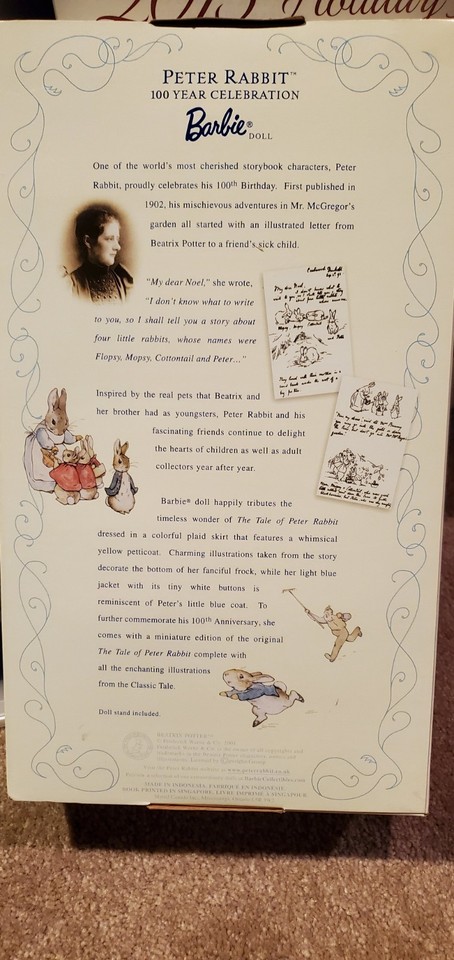 2015 Holiday
PETER RABBIT™
100 YEAR CELEBRATION
Barbie® DOLL
One of the world's most cherished storybook characters, Peter
Rabbit, proudly celebrates his 100th Birthday. First published in
1902, his mischievous adventures in Mr. McGregor's
garden all started with an illustrated letter from
Beatrix Potter to a friend's sick child.
"My dear Noel," she wrote,
"I don't know what to write
to you, so I shall tell you a story about
four little rabbits, whose names were
Flopsy, Mopsy, Cottontail and Peter..."
Inspired by the real pets that Beatrix and
her brother had as youngsters, Peter Rabbit and his
fascinating friends continue to delight
the hearts of children as well as adult
collectors year after year.
Barbie® doll happily tributes the
timeless wonder of The Tale of Peter Rabbit
dressed in a colorful plaid skirt that features a whimsical
yellow petticoat. Charming illustrations taken from the story
decorate the bottom of her fanciful frock, while her light blue
jacket with its tiny white buttons is
reminiscent of Peter's little blue coat. To
further commemorate his 100th Anniversary, she
comes with a miniature edition of the original
The Tale of Peter Rabbit complete with
all the enchanting illustrations
from the Classic Tale.
Doll stand included.
BEATRIX POTTER™
www.peterrabbit.co.uk
MADE IN INDONESIA. FABRIQUÉ EN INDONÉSIE.
BOOK PRINTED IN SINGAPORE. LIVRE IMPRIMÉ À SINGAPOUR